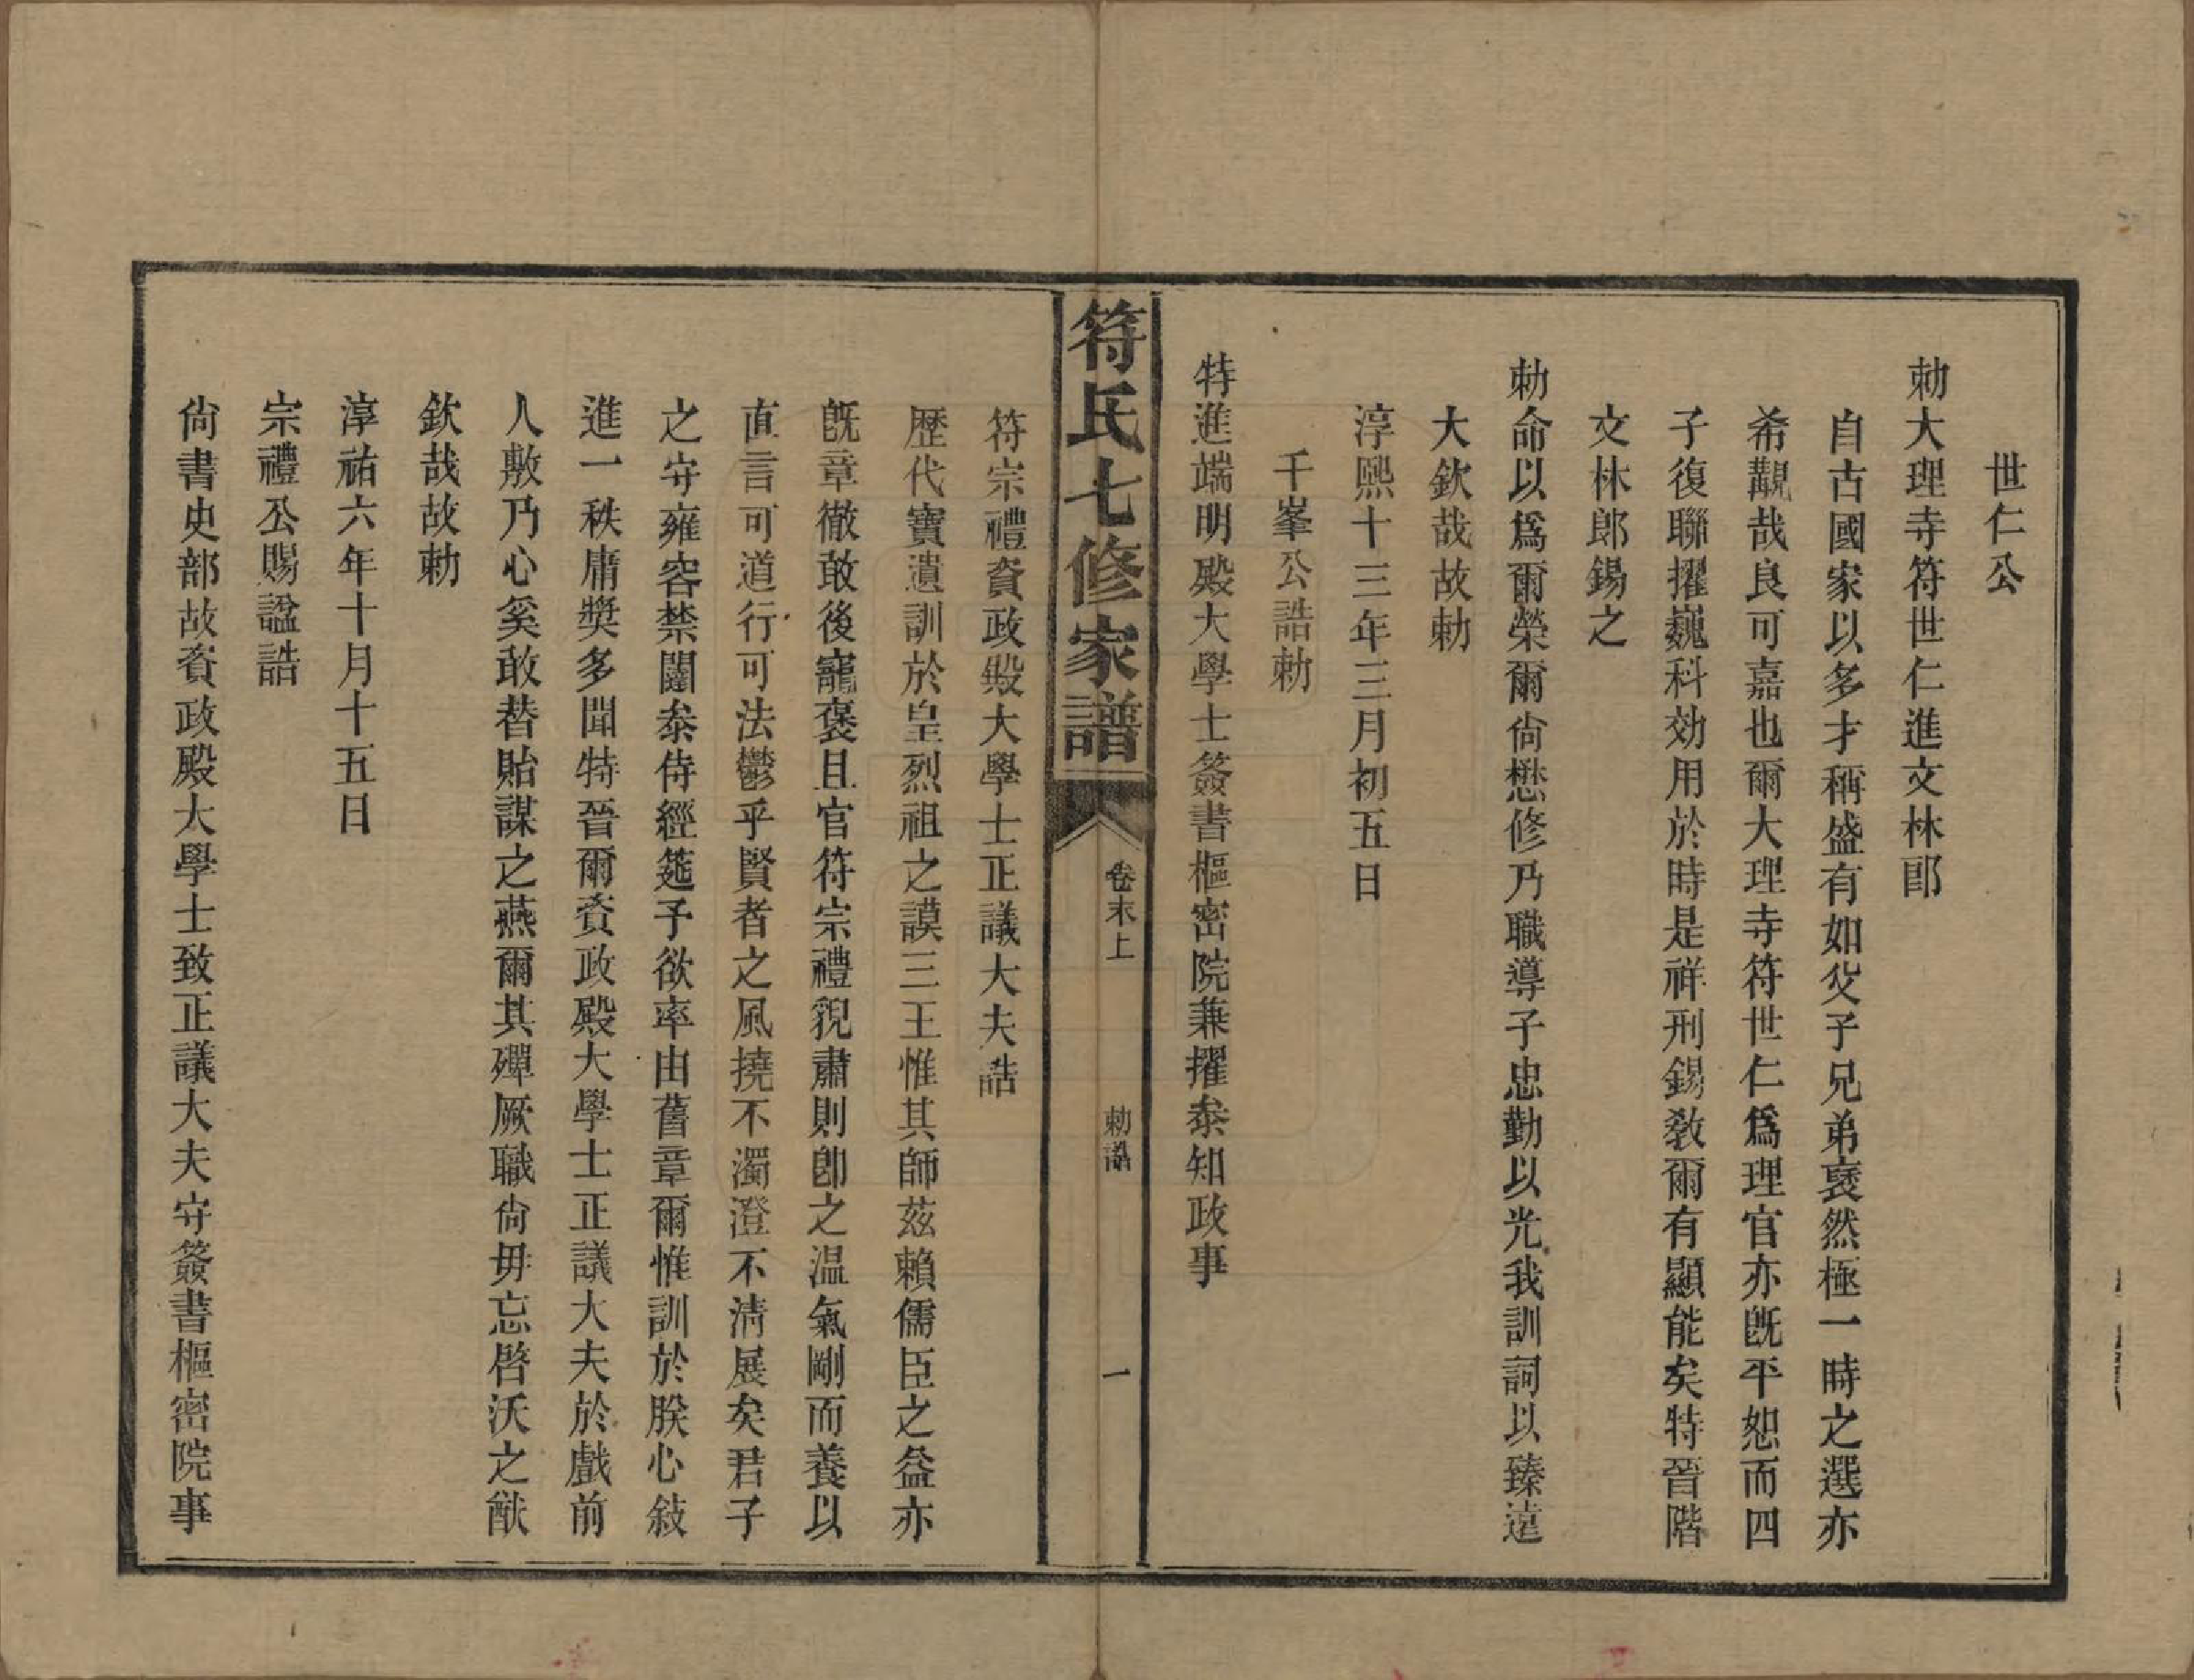 世仁公
勅大理寺符世仁進文林郎
自古國家以多才稱盛有如父子兄弟襃然極一時之選亦
希覯哉良可嘉也爾大理寺符世仁爲理官亦旣平恕而四
子復聯擢巍科効用於時是祥刑錫教爾有顯能矣特晉階
文林郎錫之
勅命以爲爾榮爾尙懋修乃職導子忠勤以光我訓詞以臻遠
大欽哉故勅
淳熙十三年三月初五日
千峯公誥勅
特進端明殿大學士簽書樞密院兼擢叅知政事
符氏七修家譜
卷末上
勅誥
一
符宗禮資政殿大學士正議大夫誥
歴代寶遺訓於皇烈祖之謨三王惟其師茲賴儒臣之益亦
旣章徹敢後寵褒且官符宗禮貌肅則卽之温氣剛而養以
直言可道行可法鬱乎賢者之風撓不濁澄不淸展矣君子
之守雍容禁闥叅侍經筵予欲率由舊章爾惟訓於朕心敍
進一秩庸奬多聞特晉爾資政殿大學士正議大夫於戲前
人敷乃心奚敢替貽謀之燕爾其殫厥職尙毋忘啓沃之猷
欽哉故勅
淳祐六年十月十五日
宗禮公賜諡誥
尙書史部故資政殿大學士致正議大夫守簽書樞密院事